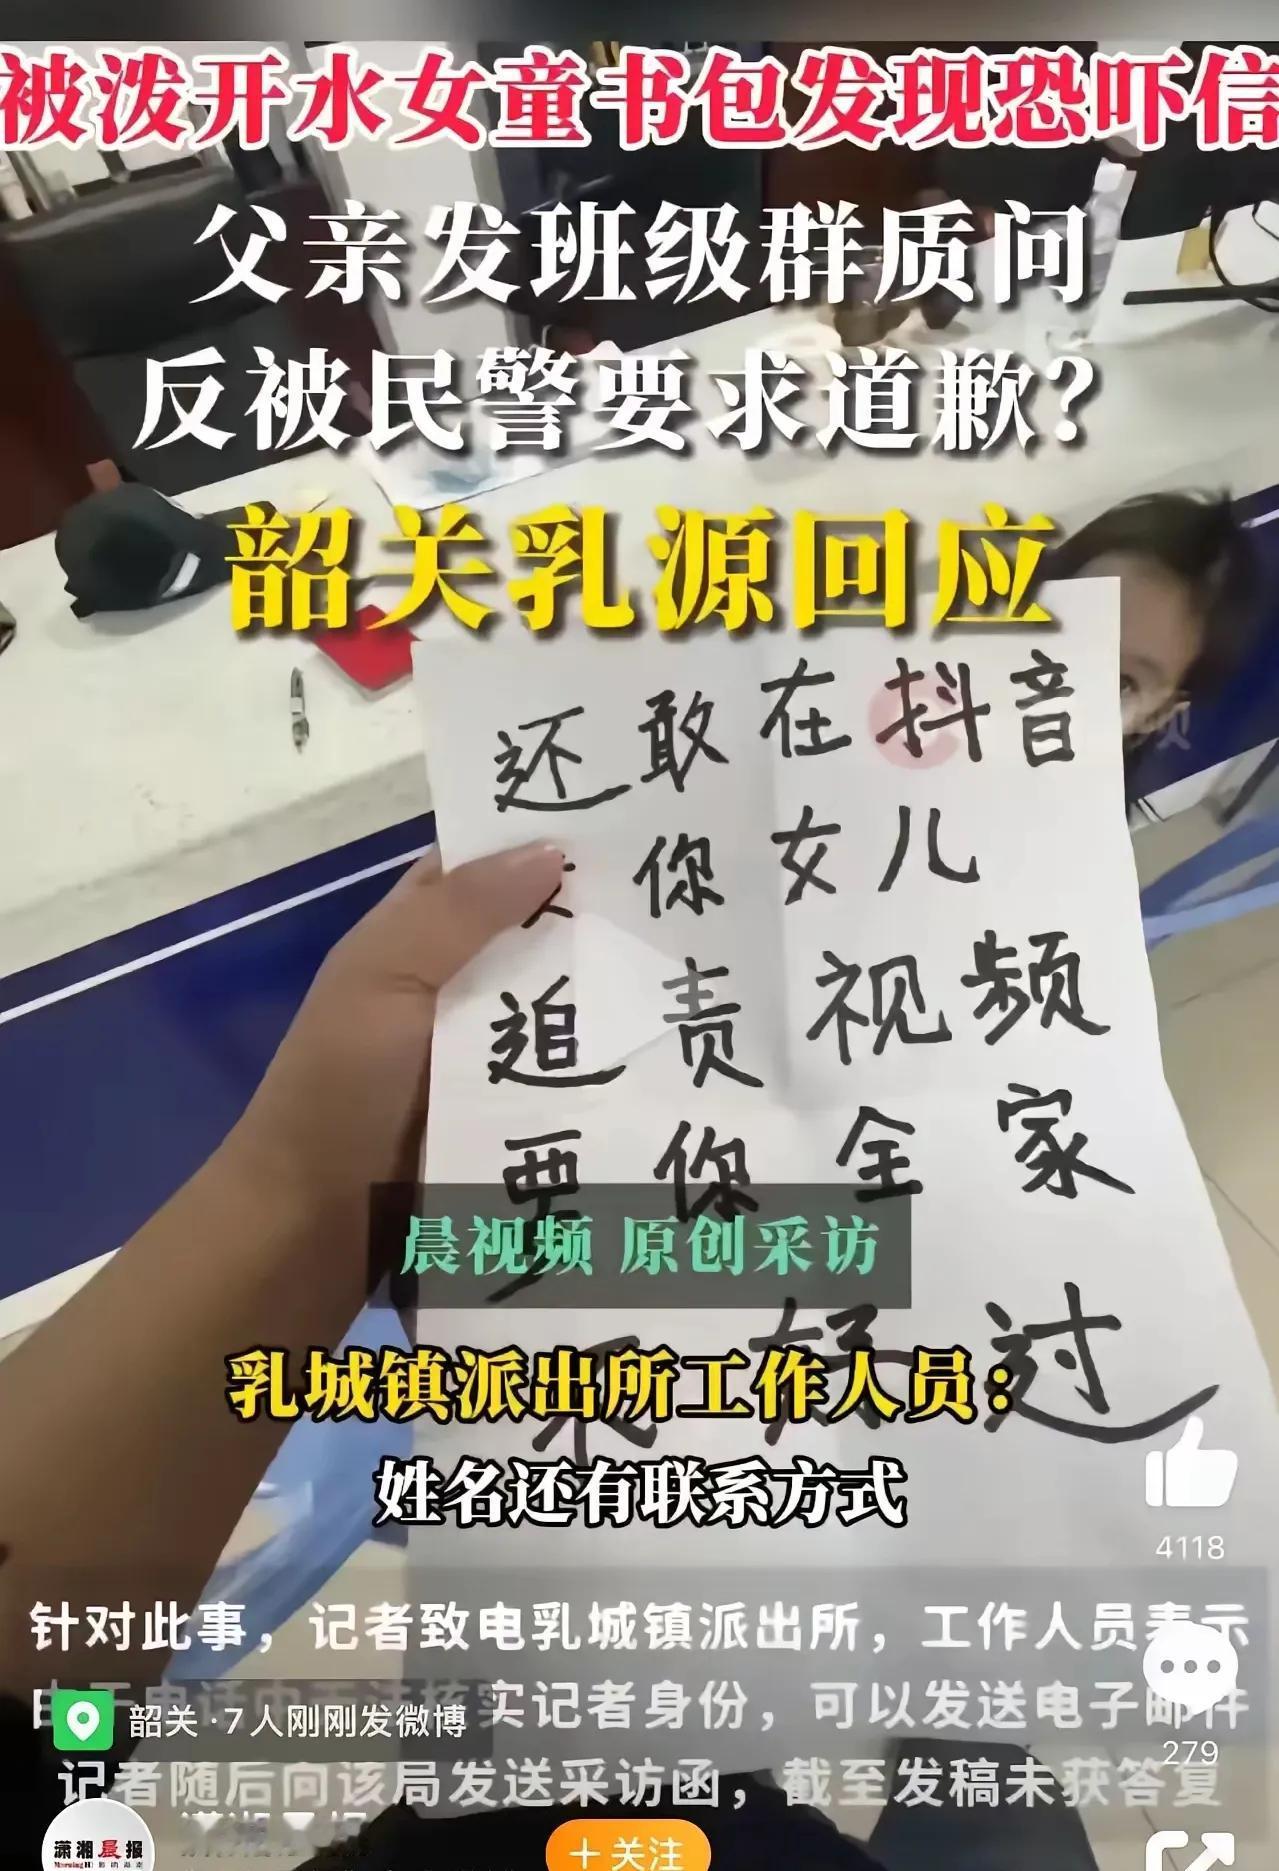 被泼开水女童书包发现恐吓信
父亲发班级群质问
反被民警要求道歉?
韶关乳源回应
还敢在抖音
你女儿
追责视频
要你全家
晨视频 原创采访
不好过
乳城镇派出所工作人员:
姓名还有联系方式
4118
针对此事，记者致电乳城镇派出所，工作人员表示
实记者身份，可以发送电子邮件
韶关·7人刚刚发微博
279
记者随后向该局发送采访函，截至发稿未获答复
潇湘晨报
潇湘晨报
+关注